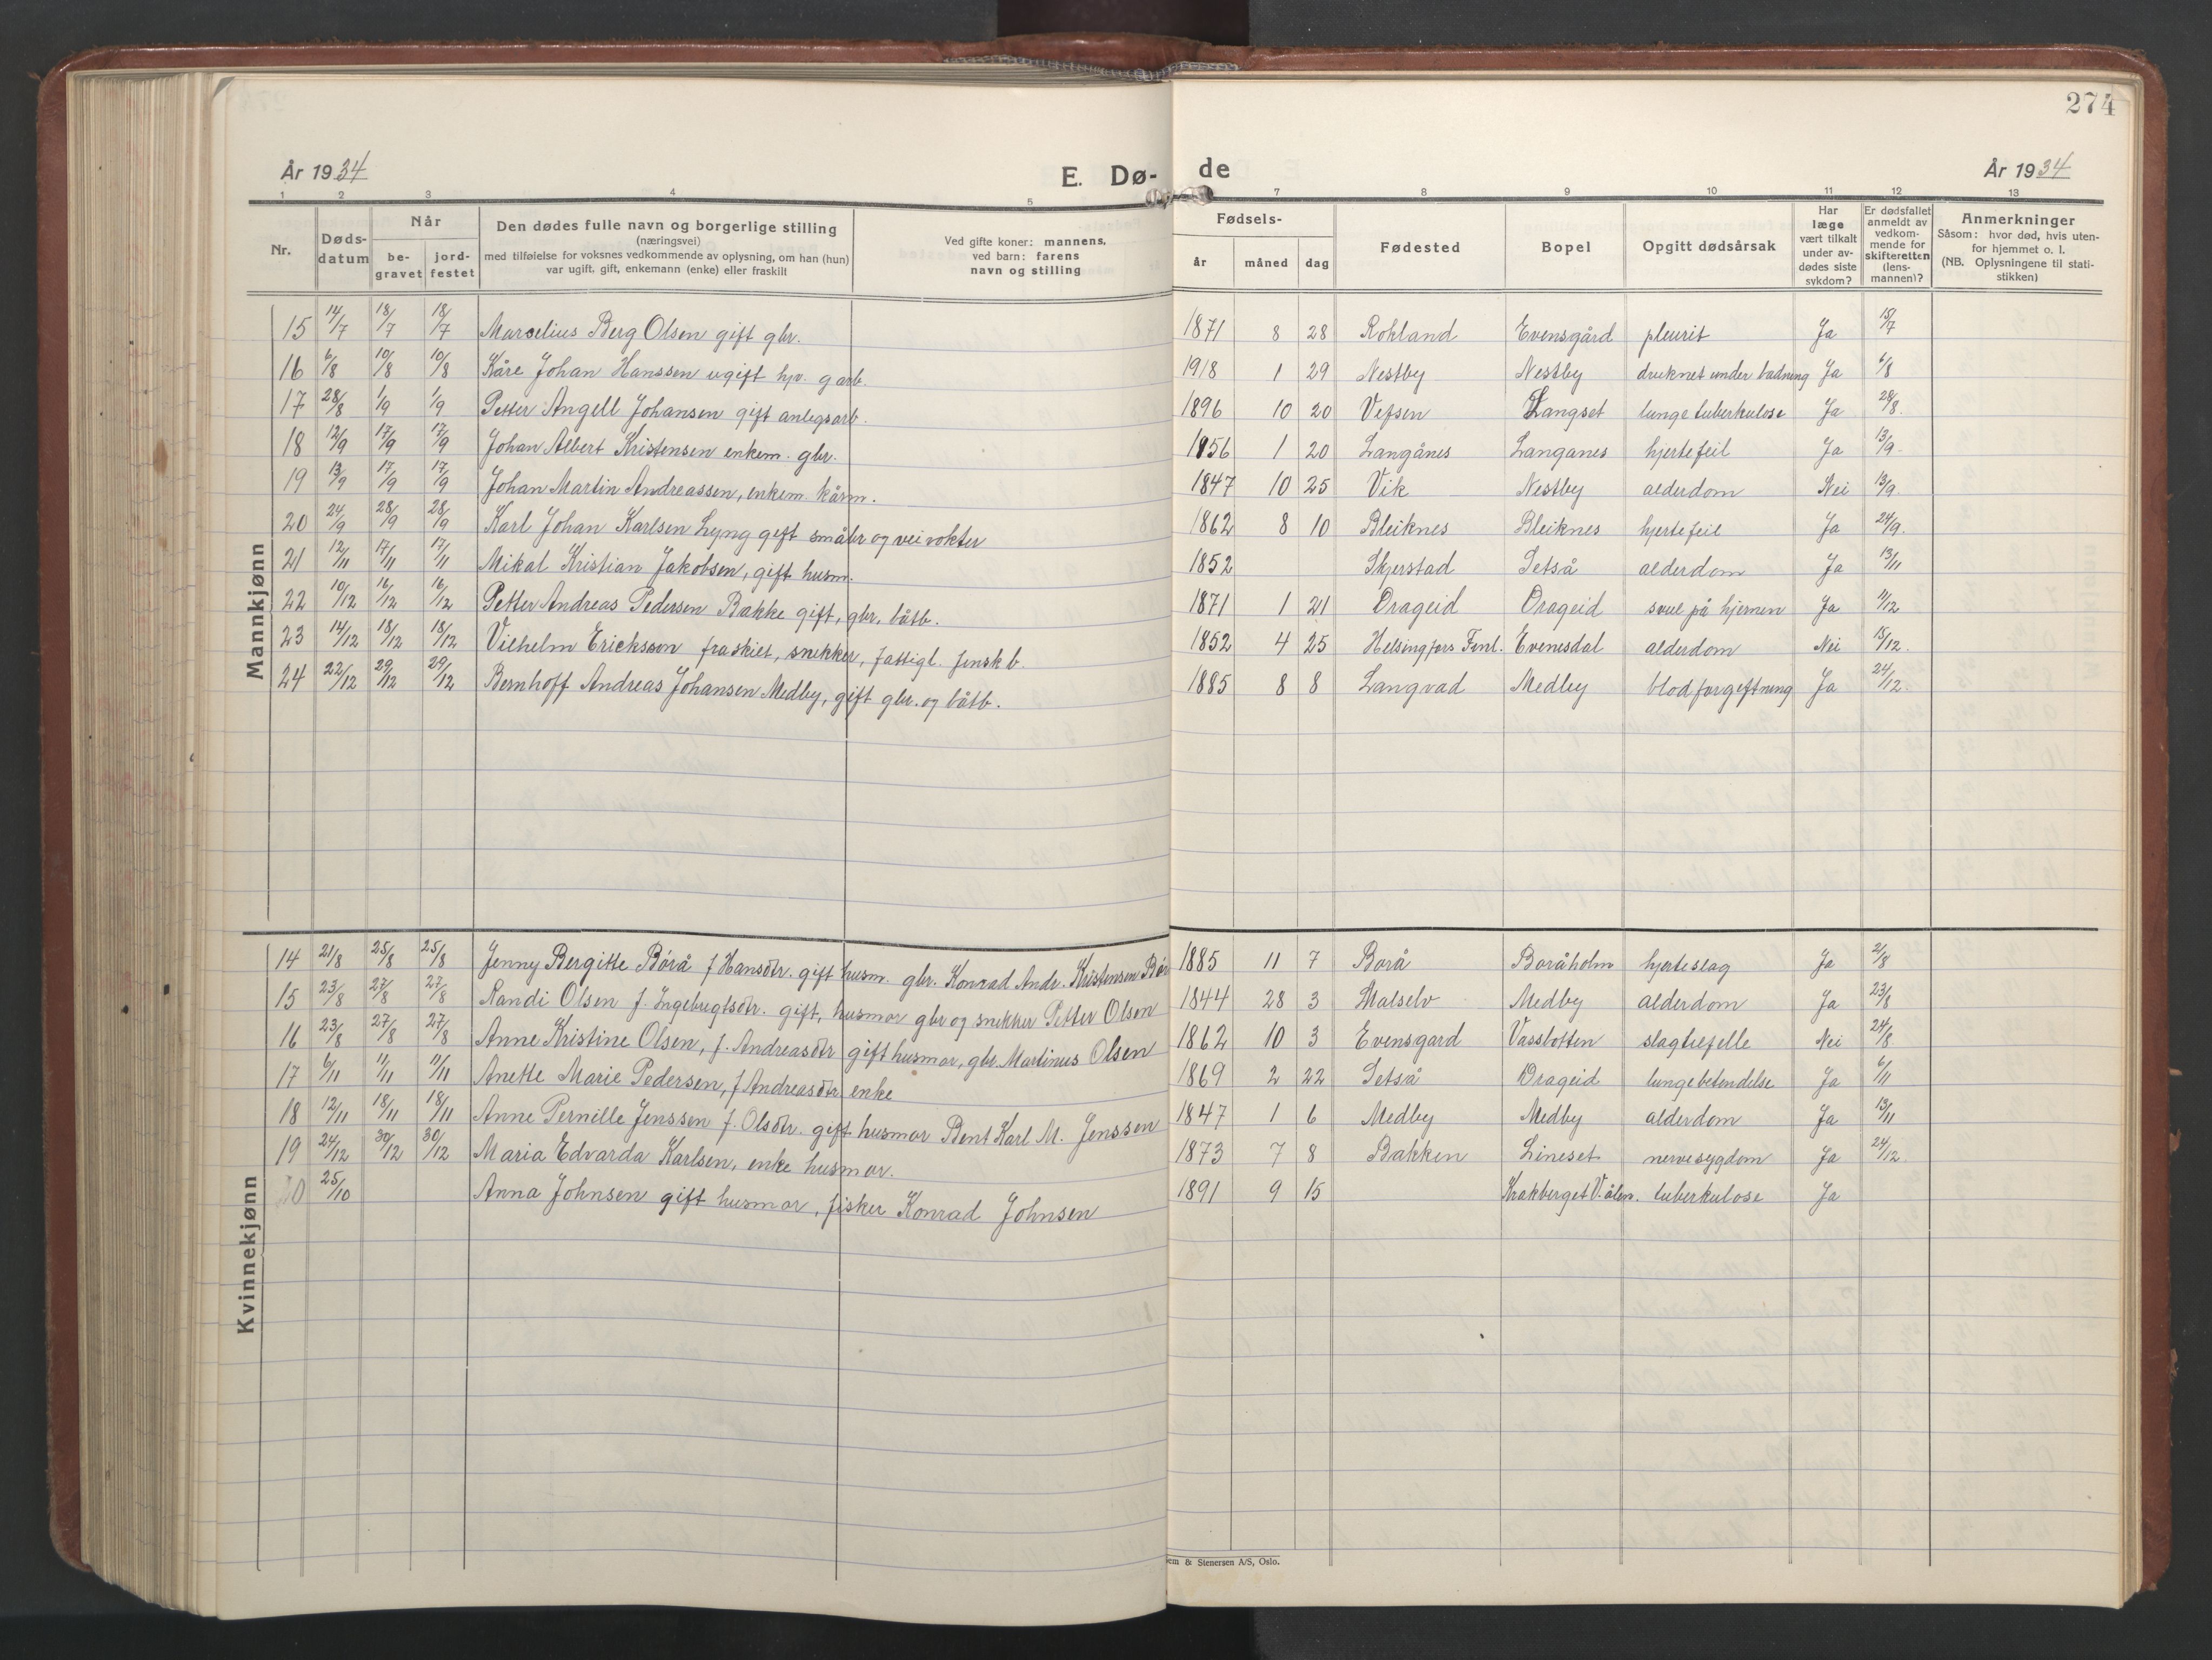 274
År 1934
E. Dø-
de
År 1934
1 2 3 4 5 7 8 9 10 11 12 13
Nr.
Døds-
datum
Når
be-
gravet
jord-
festet
Den dødes fulle navn og borgerlige stilling
(næringsvei)
med tilføielse for voksnes vedkommende av oplysning, om han (hun)
var ugift, gift, enkemann (enke) eller fraskilt
Ved gifte koner: mannens,
ved barn: farens
navn og stilling
Fødsels-
år måned dag
Fødested
Bopel
Opgitt dødsårsak
Har
læge
vært tilkalt
under av-
dødes siste
sykdom?
Er dødsfallet
anmeldt av
vedkom-
mende for
skifteretten
(lens-
mannen)?
Anmerkninger
Såsom: hvor død, hvis uten-
for hjemmet o. l.
(NB. Oplysningene til stati-
stikken)
Mannkjønn
15 14/7 18/7 18/7 Marselius Berg Olsen gift gbr. 1871 8 28 Rokland Evensgård pleurit Ja 15/7
16 6/8 10/8 10/8 Kåre Johan Hanssen ugift hjv. g arb. 1918 1 29 Nestby Nestby druknet under badning Ja 6/8
17 28/8 1/9 1/9 Petter Angell Johansen gift anlegsarb. 1896 10 20 Vefsen Langset lungetuberkulose Ja 28/8.
18 12/9 17/9 17/9 Johan Albert Kristensen enkem. gbr. 1856 1 20 Langånes Langanes hjertefeil Ja 13/9.
19 13/9 17/9 17/9 Johan Martin Andreassen, enkem. kårm. 1847 10 25 Vik Nestby alderdom Nei 13/9.
20 24/9 28/9 28/9 Karl Johan Karlsen Lyng gift småbr og veivokter 1862 8 10 Bleiknes Bleiknes hjertefeil Ja 24/9.
21 12/11 17/11 17/11 Mikal Kristian Jakobsen, gift husm. 1852 Skjerstad Setså alderdom Ja 13/11
22 10/12 16/12 16/12 Petter Andreas Pedersen Bakke gift, gbr. båtb. 1871 1 21 Drageid Drageid svul på hjernen Ja 11/12
23 14/12 18/12 18/12 Vilhelm Ericksson fraskilt, snekker, fattigl. finsk b. 1852 4 25 Helsingfors Finl. Evenesdal alderdom Nei 15/12.
24 22/12 29/12 29/12 Bernhoff Andreas Johansen Medby, gift gbr. og båtb. 1885 8 8 Langvad Medby blodforgiftning Ja 24/12.
Kvinnekjønn
14 21/8 25/8 25/8 Jenny Bergitte Börå f Hansdtr. gift husm. gbr. Konrad Andr. Kristensen Bör 1885 11 7 Borå Boråholm hjerteslag Ja 2/8
15 23/8 27/8 27/8 Randi Olsen f. Ingebrigtsdtr. gift, husmor gbr og snekker Petter Olsen 1844 28 3 Malselv Medby alderdom Ja 23/8
16 23/8 27/8 27/8 Anne Kristine Olsen, f. Andreasdtr gift husmor, gbr. Martinus Olsen 1862 10 3 Evensgard Vassbotten slagtilfelle Nei 24/8
17 6/11 11/11 11/11 Anette Marie Pedersen, f Andreasdtr enke 1869 2 22 Setså Drageid lungebetendelse Ja 6/11
18 12/11 18/11 18/11 Anne Pernille Jenssen f. Olsdtr. gift husmor Bent Karl M. Jenssen 1847 1 6 Medby Medby alderdom Ja 13/11
19 24/12 30/12 30/12 Maria Edvarda Karlsen, enke husmor. 1873 7 8 Bakken Lineset nervesygdom Ja 24/12.
20 25/10 Anna Johnsen gift husmor, fisker Konrad Johnsen 1891 9 15 Krakberget V.ålen. tuberkulose Ja
& Stenersen A/S, Oslo.